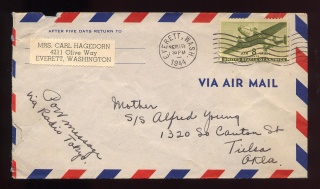 AFTER FIVE DAYS RETURN TO
MRS. CARL HAGEDORN
4211 Olive Way
EVERETT, WASHINGTON
EVERETT, WASH.
1944
8
VIA AIR MAIL
Mother
S/S Alfred Young
1320 So Canton St
Tulsa
Okla.
POW message
via Radio Tokyo